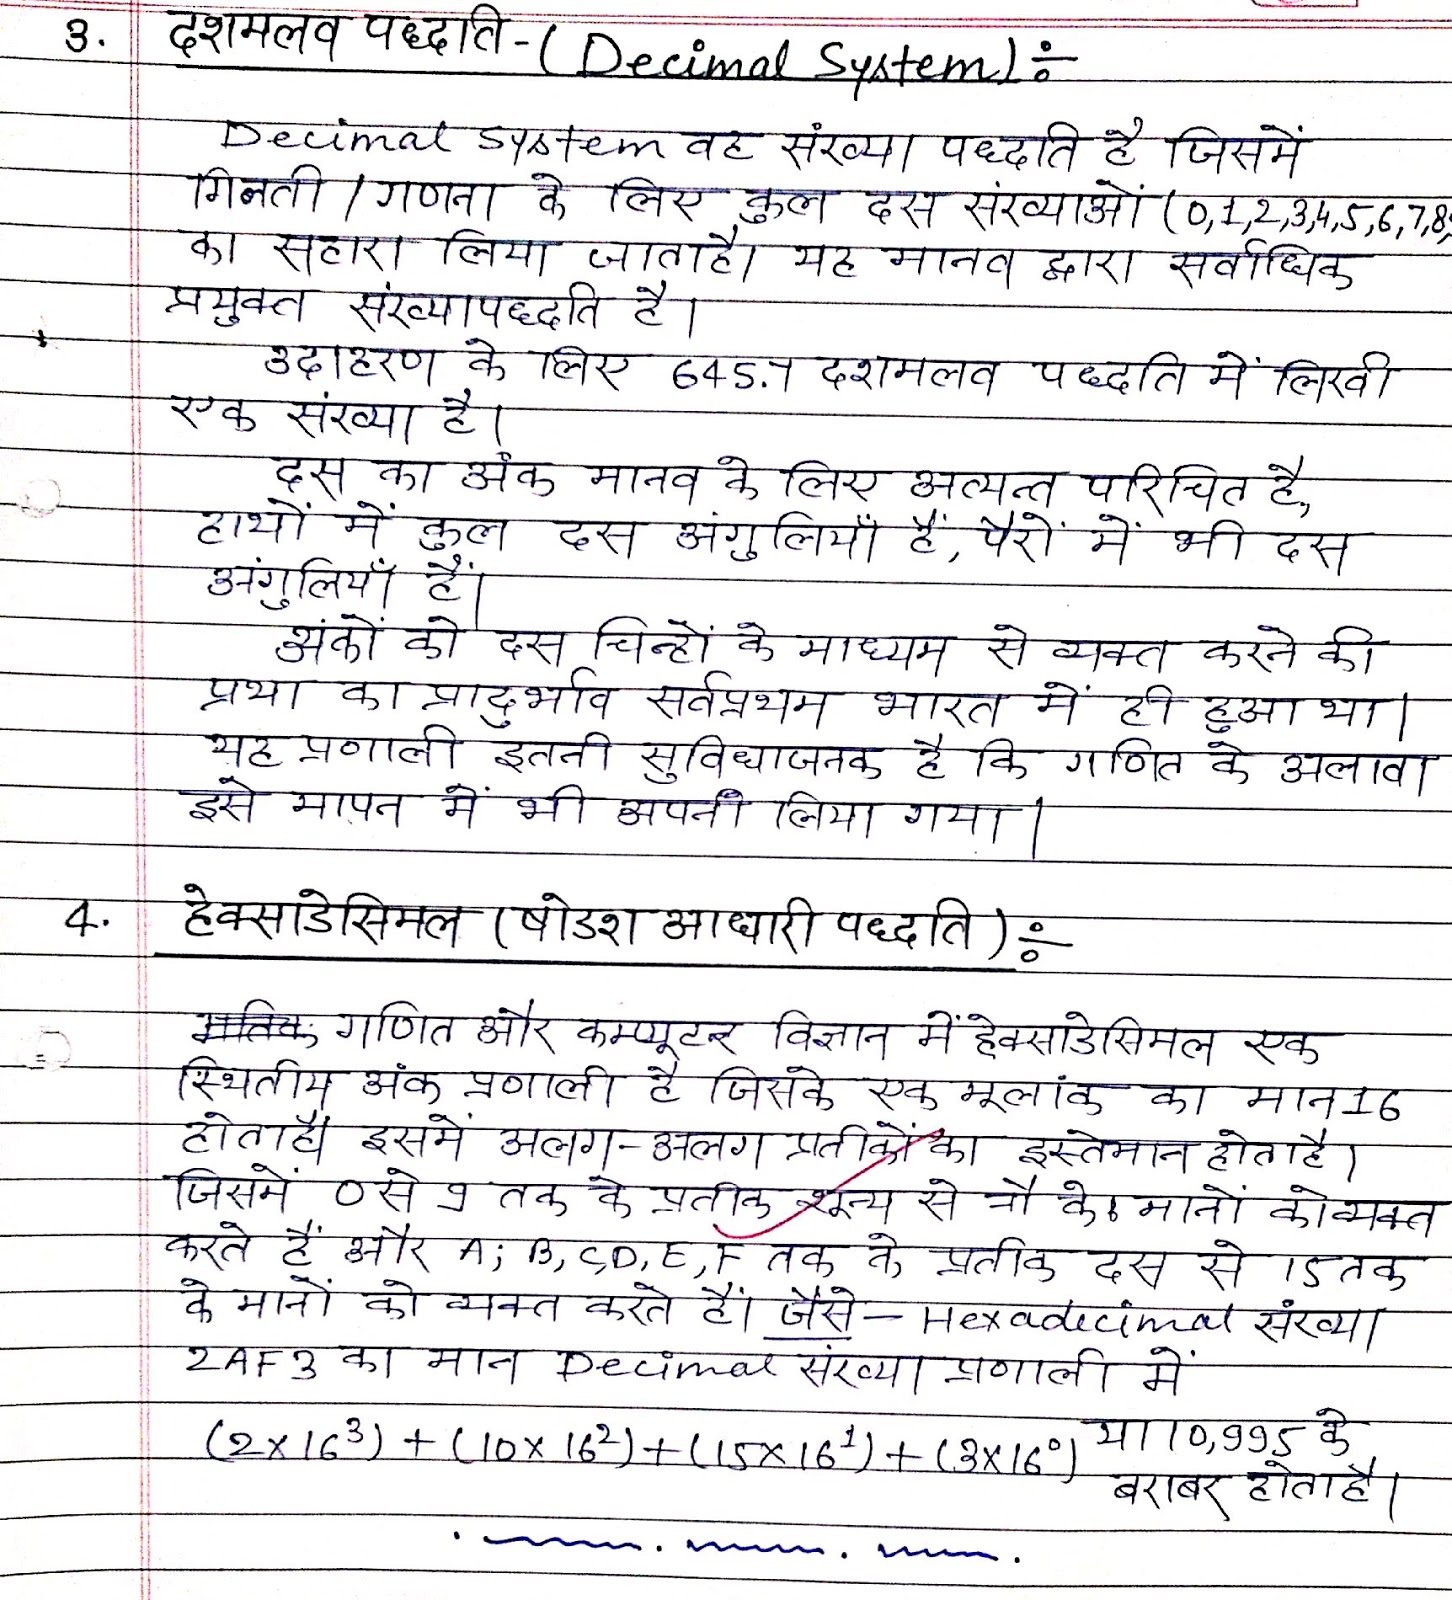 3. दशमलव पद्धति - (Decimal System) ÷
Decimal System वह संख्या पद्धति है जिसमें
गिनती / गणना के लिए कुल दस संख्याओं (0,1,2,3,4,5,6,7,8,
का सहारा लिया जाता है। यह मानव द्वारा सर्वाधिक
प्रयुक्त संख्यापद्धति है।
उदाहरण के लिए 645.7 दशमलव पद्धति में लिखी
एक संख्या है।
दस का अंक मानव के लिए अत्यन्त परिचित है,
हाथों में कुल दस अंगुलियाँ हैं, पैरों में भी दस
अंगुलियाँ हैं।
अंकों को दस चिन्हों के माध्यम से व्यक्त करने की
प्रथा का प्रादुर्भाव सर्वप्रथम भारत में ही हुआ था।
यह प्रणाली इतनी सुविधाजनक है कि गणित के अलावा
इसे मापन में भी अपनी लिया गया।
4. हेक्साडेसिमल (षोडश आधारी पद्धति) ÷
गणित और कम्प्यूटर विज्ञान में हेक्साडेसिमल एक
स्थितीय अंक प्रणाली है जिसके एक मूलांक का मान 16
होता है। इसमें अलग-अलग प्रतीकों का इस्तेमान होता है।
जिसमें 0 से 9 तक के प्रतीक शून्य से नौ के मानों को व्यक्त
करते हैं और A, B, C, D, E, F तक के प्रतीक दस से 15 तक
के मानों को व्यक्त करते हैं। जैसे - Hexadecimal संख्या
2AF3 का मान Decimal संख्या प्रणाली में
(2×16³) + (10×16²) + (15×16¹) + (3×16⁰) या 10,995 के
बराबर होता है।